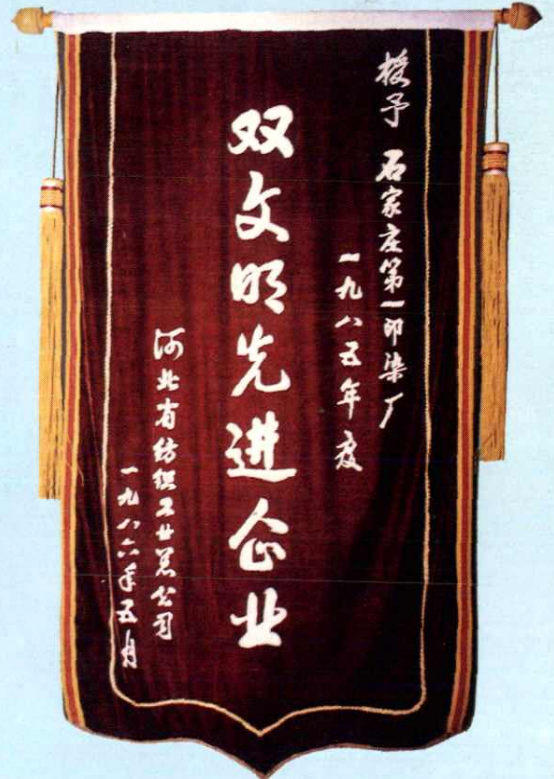 授予 石家庄第一印染厂
一九八五年度
双文明先进企业
河北省纺织工业总公司
一九八六年五月